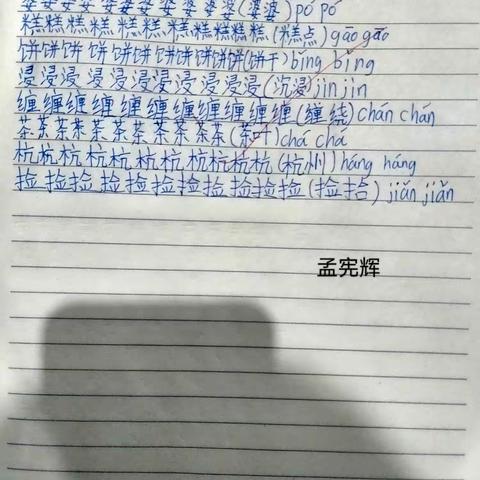 婆婆婆婆婆婆婆婆婆婆婆(婆婆)pó pó
糕糕糕糕糕糕糕糕糕糕糕(糕点)gāo gāo
饼饼饼饼饼饼饼饼饼饼饼(饼干)bǐng bǐng
浸浸浸浸浸浸浸浸浸浸浸(沉浸)jìn jìn
缠缠缠缠缠缠缠缠缠缠缠(缠绕)chán chán
茶茶茶茶茶茶茶茶茶茶茶(茶叶)chá chá
杭杭杭杭杭杭杭杭杭杭杭(杭州)háng háng
捡捡捡捡捡捡捡捡捡捡捡(捡拾)jiǎn jiǎn
孟宪辉